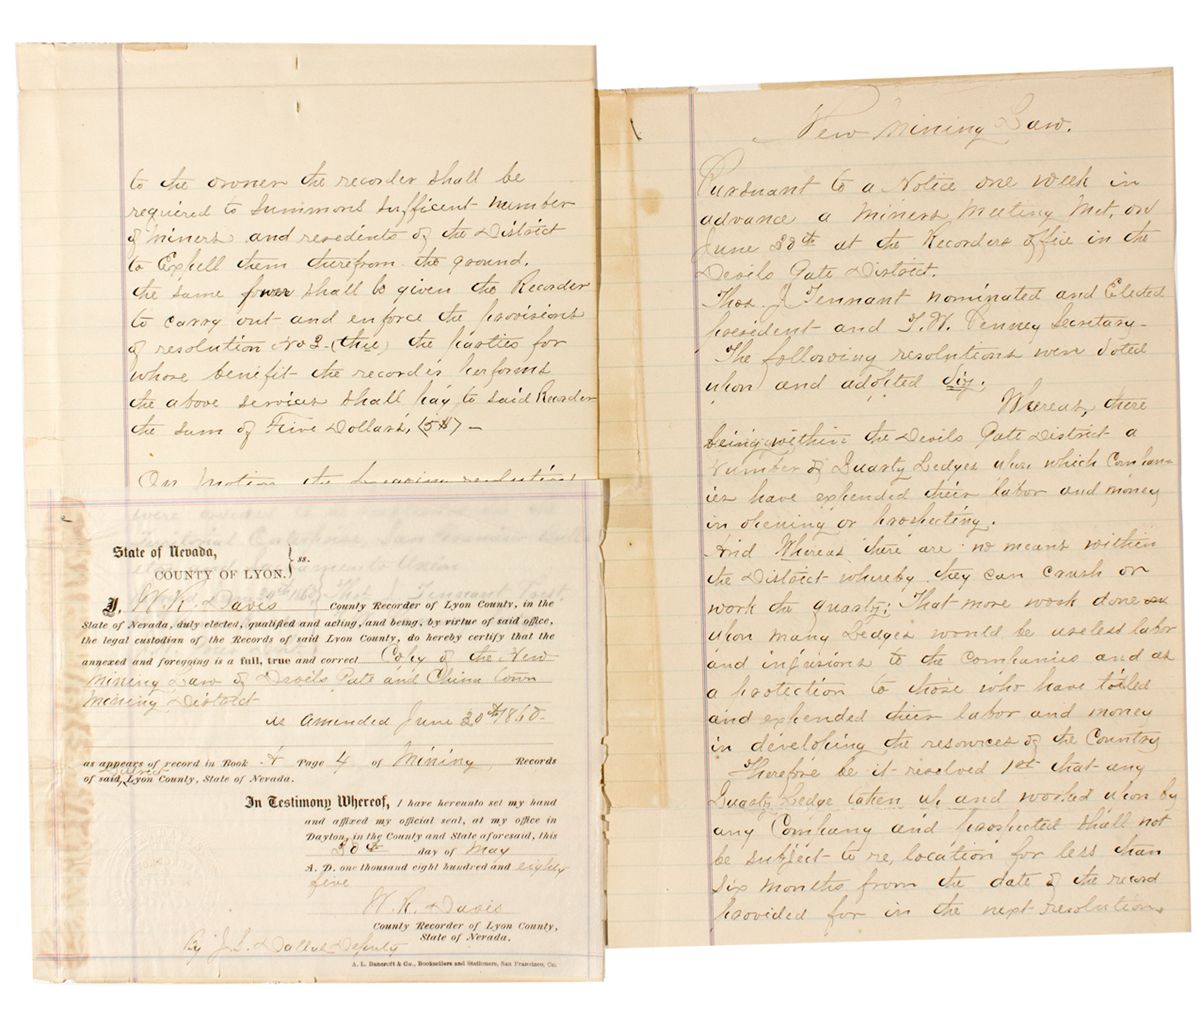 to the owner the recorder shall be
required to summons sufficent number
of miners and resedents of the District
to Exhell them therefrom the ground.
the same power shall be given the Recorder
to carry out and enforce the provisions
of resolution No 3 - (thee) the parties for
whose benefit the recorder performs
the above services shall pay to said Recorder
the sum of Five Dollars, (5$) -
On Motion the
State of Nevada,
COUNTY OF LYON. } ss.
I, W. R. Davis County Recorder of Lyon County, in the
State of Nevada, duly elected, qualified and acting, and being, by virtue of said office,
the legal custodian of the Records of said Lyon County, do hereby certify that the
annexed and foregoing is a full, true and correct Copy of the New
Mining Law of Devils Gate and China town
Mining District
as Amended June 20th 1860
as appears of record in Book A Page 4 of Mining Records
of said District Lyon County, State of Nevada.
In Testimony Whereof, I have hereunto set my hand
and affixed my official seal, at my office in
Dayton, in the County and State aforesaid, this
28th day of May
A. D. one thousand eight hundred and eighty
five
W. R. Davis
County Recorder of Lyon County,
State of Nevada.
By J. L. Deputy
A. L. Bancroft & Co., Booksellers and Stationers, San Francisco, Cal.
New Mining Law.
Pursuant to a Notice one week in
advance a Miners Meeting Met, on
June 20th at the Recorders office in the
Devils Gate District.
Thos. J. Tennant nominated and Elected
president and T. W. Penney Secretary -
The following resolutions were voted
upon and adopted viz;
Whereas, there
being within the Devils Gate District a
Number of Quartz Ledges upon which Compan-
ies have expended their labor and money
in opening or prospecting.
And Whereas there are no means within
the District whereby they can crush or
work the quartz; That more work done
upon many Ledges would be useless labor
and injurious to the companies and as
a protection to those who have toiled
and expended their labor and money
in developing the resources of the Country
Therefore be it resolved 1st that any
Quartz Ledge taken up and worked upon by
any Company and prospected shall not
be subject to re, location for less than
six months from the date of the record
provided for in the next resolution,